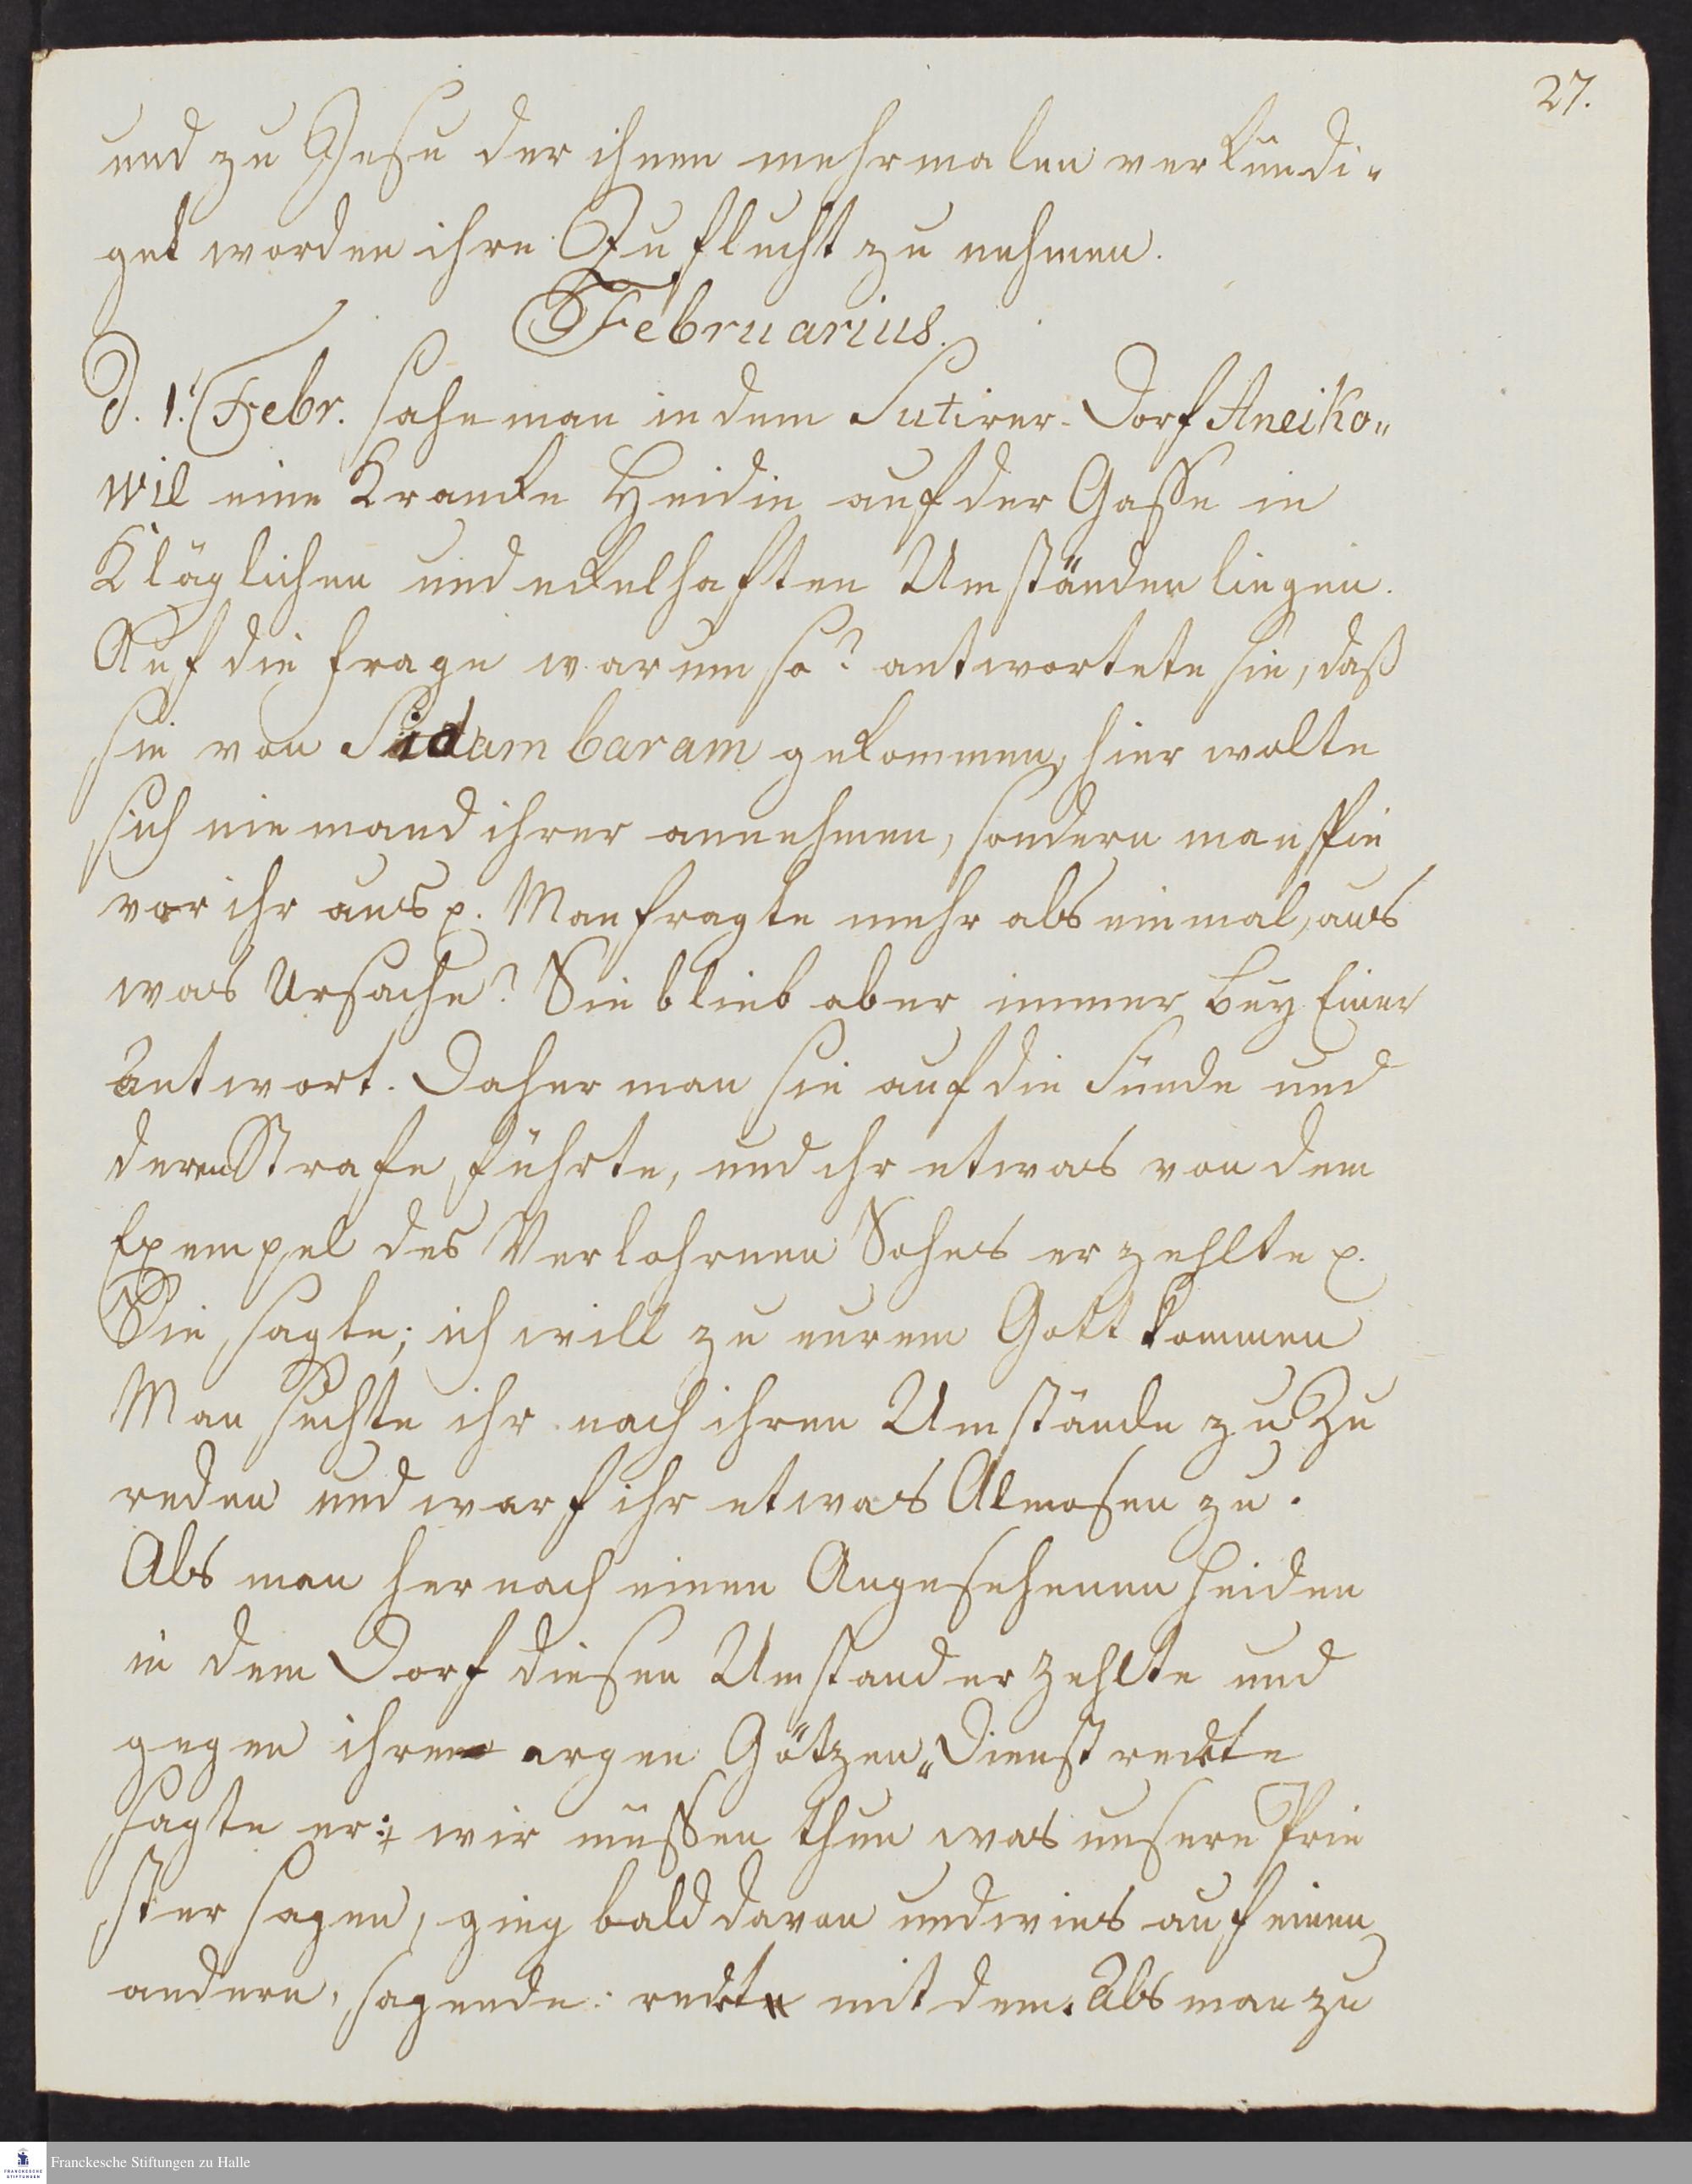 27.
und zu Jesu der ihnen mehrmalen verkündi-
get worden ihre Zuflucht zu nehmen.
Februarius.
d. 1. Febr. sahe man in dem Sutirer-Dorf Aneiko-
wil eine Krancke Heidin auf der Gasse in
Kläglichen und eckelhaften Umständen liegen.
Auf die frage warum so? antwortete sie, daß
sie von Sidambaram gekommen, hier wolte
sich niemand ihrer annehmen, sondern man spie
vor ihr aus p. Man fragte mehr als einmal, aus
was Ursache? Sie blieb aber immer bey Einer
Antwort. Daher man sie auf die Sünde und
deren Strafe führte, und ihr etwas von dem
Exempel des Verlohrnen Sohns erzehlte p.
Sie sagte; ich will zu eurem Gott kommen
Man suchte ihr nach ihren Umstände zu Zu
reden und warf ihr etwas Almosen zu.
Als man hernach einen Angesehenen Heiden
in dem Dorf diesen Umstand erzehlte und
gegen ihren argen Götzen-Dienst redete
sagte er: wir müssen thun was unsere Prie
ster sagen, ging bald davon und wies auf einen
andern, sagende: redet mit dem. Als man zu
Franckesche Stiftungen zu Halle